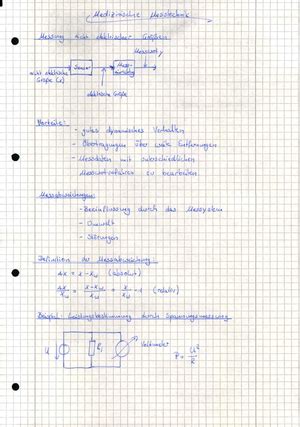 Medizinische Messtechnik
Messung nicht elektrischer Größen
Messwert y
Sensor
Mess-
nicht elektrische
Größe (x)
elektrische Größe
Vorteile:
- gutes dynamisches Verhalten
- Übertragungen über weite Entfernungen
- Messdaten mit unterschiedlichen
Messverfahren zu bearbeiten
Messabweichungen:
- Beeinflussung durch das Messsystem
- Umwelt
- Störungen
Definition der Messabweichung:
Δx = x - xw (absolut)
Δx/xw = (x - xw)/xw = x/xw - 1 (relativ)
Beispiel: Leistungsbestimmung durch Spannungsmessung
U
R
Voltmeter
P = U²/R